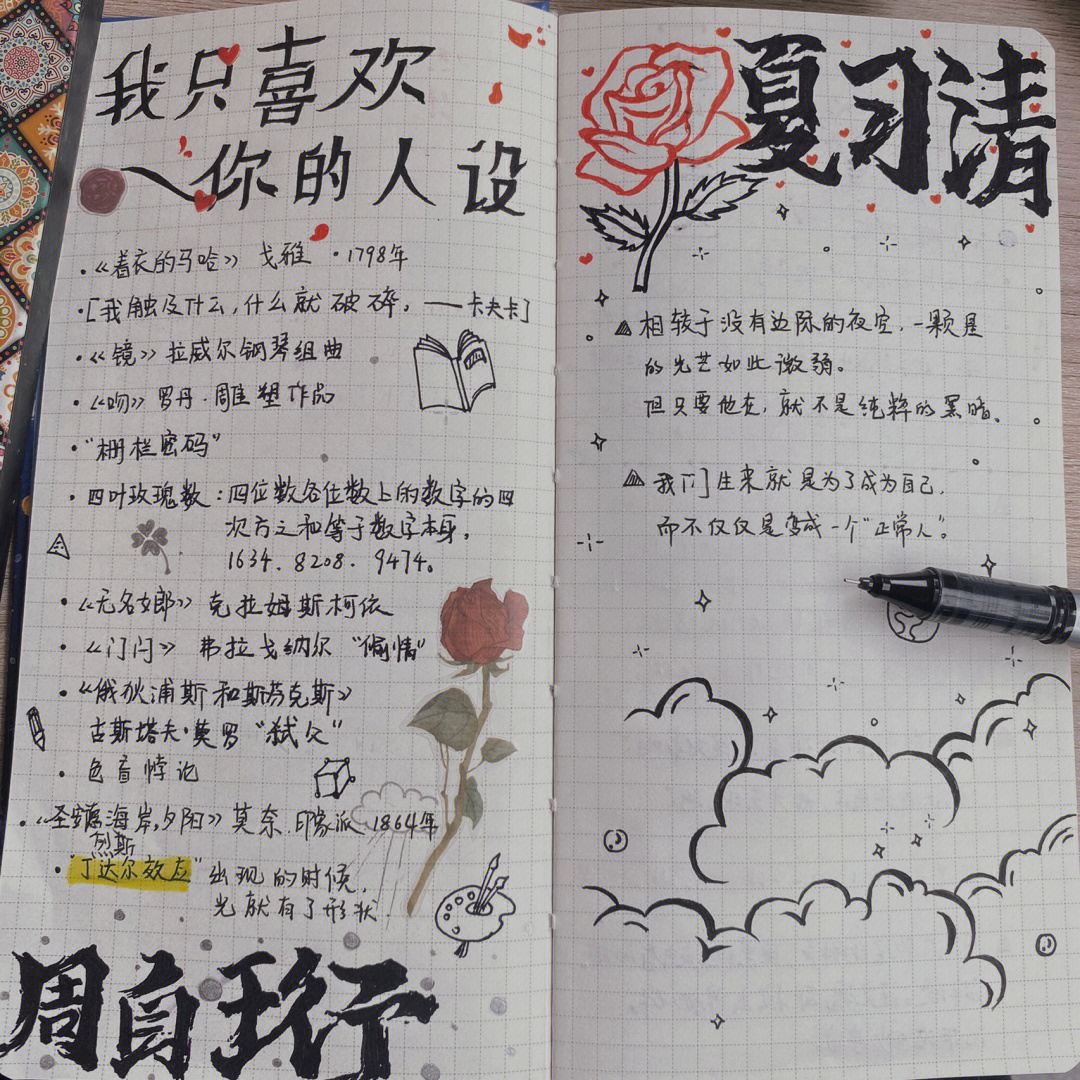 我只喜欢
你的人设
·《着衣的马哈》 戈雅 ·1798年
·[我触及什么,什么就破碎。——卡夫卡]
·《镜》拉威尔钢琴组曲
·《吻》罗丹.雕塑作品
·“栅栏密码”
·四叶玫瑰数:四位数各位数上的数字的四
次方之和等于数字本身。
1634. 8208. 9474。
·《无名女郎》 克拉姆斯柯依
·《门闩》 弗拉戈纳尔 “偷情”
·《俄狄浦斯和斯芬克斯》
古斯塔夫·莫罗 “弑父”
·色盲悖论
·《圣安德海岸,夕阳》莫奈.印象派 1864年
烈斯
·“丁达尔效应” 出现的时候,
光就有了形状.
周自珩
夏习清
相较于没有边际的夜空,一颗星
的光芒如此微弱。
但只要他在,就不是纯粹的黑暗。
我们生来就是为了成为自己,
而不仅仅是变成一个“正常人”。